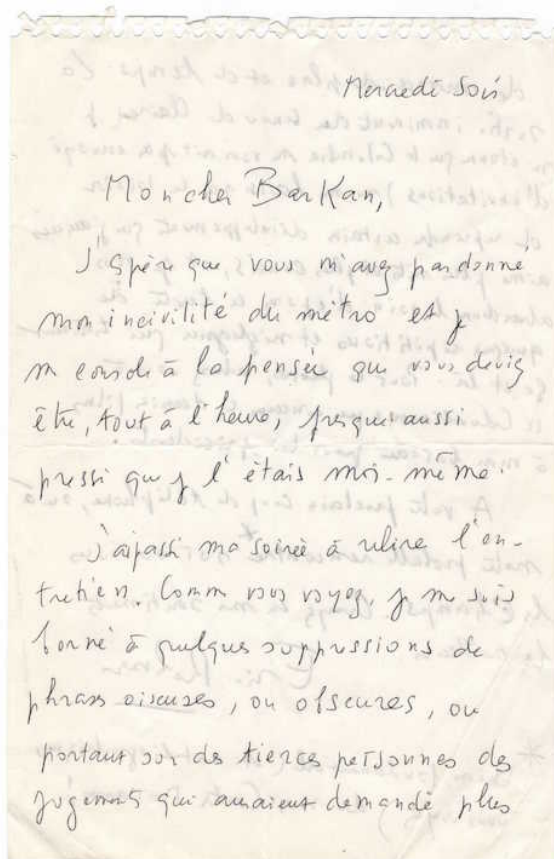 Mercredi Soir
Mon cher Barkan,
J'espère que vous m'avez pardonné
mon incivilité du métro et je
me console à la pensée que vous deviez
être, tout à l'heure, presque aussi
pressé que je l'étais moi-même.
J'ai passé ma soirée à relire l'en-
tretien. Comme vous voyez, je me suis
borné à quelques suppressions de
phrases oiseuses, ou obscures, ou
portant sur des tierces personnes des
jugements qui auraient demandé plus